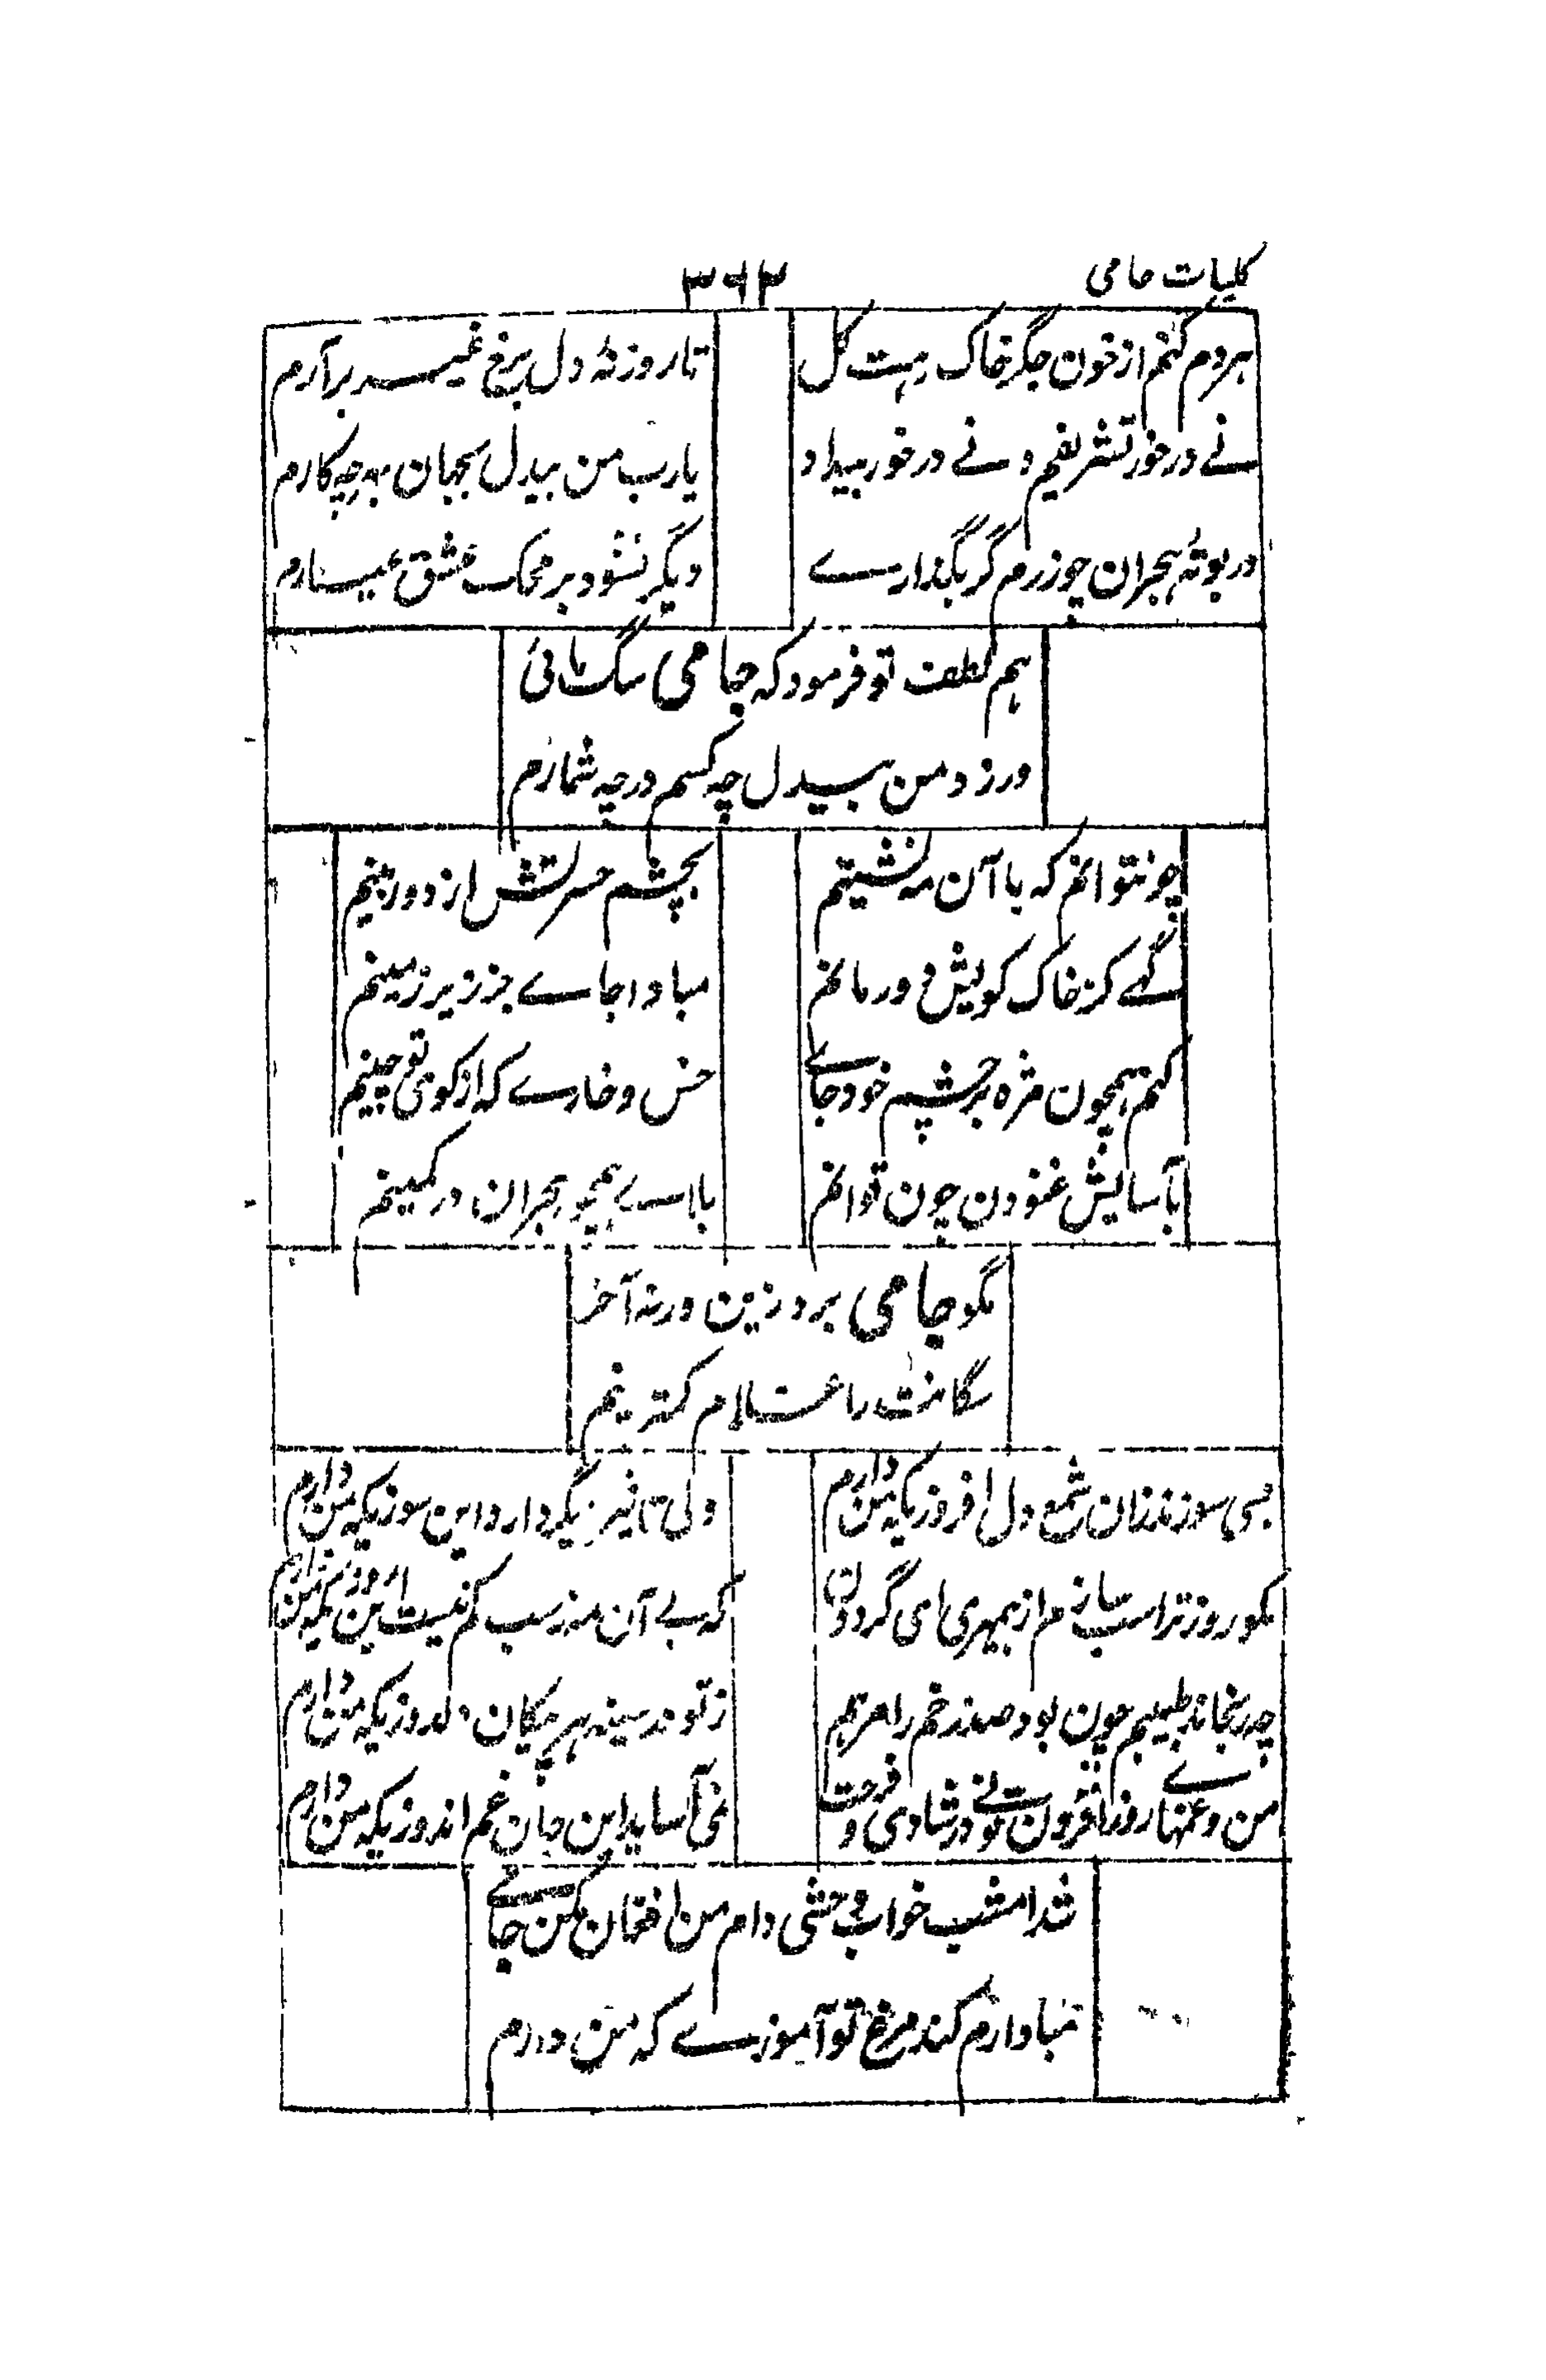 کلیات جامی
۳۶۲
هردم کنم از خون جگر خاک رهت گل
تا روزنهٔ دل برخ غیر برآرم
نے درخور تشریفم و نے درخور بیداد
یارب من بیدل بجهان بهرچه کارم
در بوتهٔ هجران چو زرم گر بگذارے
دیگر نشود بر محک عشق عیارم
هم لطف تو فرمود که جامی سگ مائی
ورنه من بیدل چه کسم در چه شمارم
چو نتوانم که با آن مه نشینم
بچشم حسرتش از دور بینم
گہے کز خاک کویش دور مانم
مبادا جاے جز زیر زمینم
کنم همچون مژه بر چشم خود جاے
خس و خارے که از کوی تو چینم
بآسایش غنودن چون توانم
بلاے همچو هجران در کمینم
مگو جامی برو زین در نه آخر
سگانت را غلام کمترینم
بسی سوزند زان شمع دل افروزیکه من دارم
ولی تاثیر دیگر دارد این سوزیکه من دارم
مکو روز ترا سازم از بیمهری ای گردون
که بے آن مه ز شب کم نیست این روزیکه من دارم
چه رنجاند طبیبم چون بود صد زخم را مرهم
ز تو در سینه هر پیکان دلدوزیکه من دارم
من و غمهاے روزافزون تو نے در شادی و فرحت
نمی آساید این جان غم اندوزیکه من دارم
شد امشب خواب وحشی دام من افغان مکن جامے
مبادا رم کند مرغ نوآموزے که من دارم